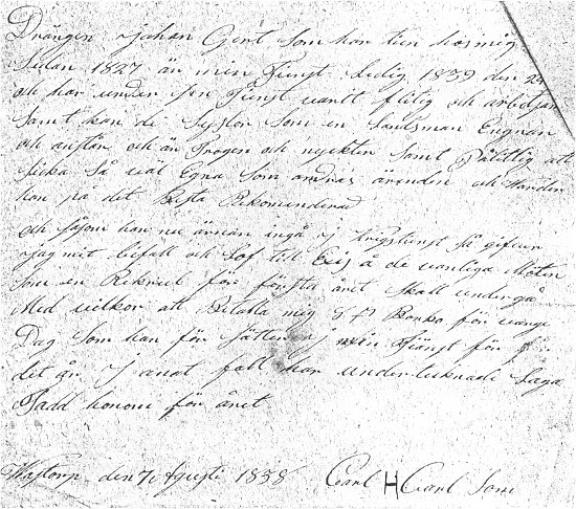 Drängen Johan Gert Som har tien hos mig
Sedan 1827 är min Tienst Ledig 1839 den 24
och har under sin Tienst varit flitig och arbetsam
Samt kan de Syslor Som en Landsman Engnar
och anstår, och är Trogen och nyckter Samt Pålitlig att
skicka Så väl Egna Som andras ärender och Warder
han på det Besta Rekomenderad
och såsom han nu ärnar ingå i krigstienst Så gifver
Jag mit bifall och Lof till Exis å de vanliga Möten
Som en Rekrut för första året Skall undergå
Med vilkor att Betalla mig Banko för varje
Dag Som han för in Tienst för
det år I anat fall har undertecknade Laga
Stadd honom för året
Wastorp den 7 Agusti 1838 Carl H Carl Son